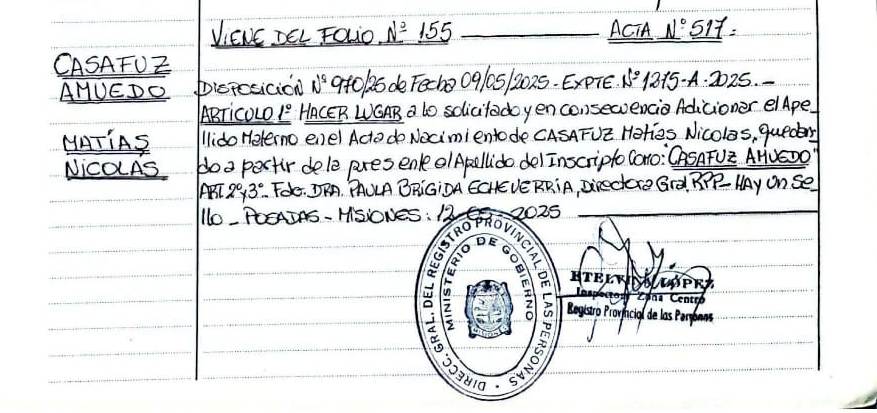 VIENE DEL FOLIO Nº 155 ——— ACTA Nº 517:
CASAFUZ
AMUEDO
MATÍAS
NICOLAS
DISPOSICIÓN Nº 970/25 de Fecha 09/05/2025 - EXPTE. Nº 1215-A-2025. -
ARTICULO 1º HACER LUGAR a lo solicitado y en consecuencia Adicionar el Ape_
llido Materno en el Acta de Nacimiento de CASAFUZ Matías Nicolas, quedan
do a partir de la presente el Apellido del Inscripto como: "CASAFUZ AMUEDO"
ART 2º y 3º. Fdo. DRA. PAULA BRIGIDA ECHEVERRIA, Directora Gral. RPP - HAY Un Se_
llo - POSADAS - MISIONES: 12-05-2025
DIRECC. GRAL. DEL REGISTRO PROVINCIAL DE LAS PERSONAS
MINISTERIO DE GOBIERNO
LÓPEZ
Inspectora Zona Centro
Registro Provincial de las Personas